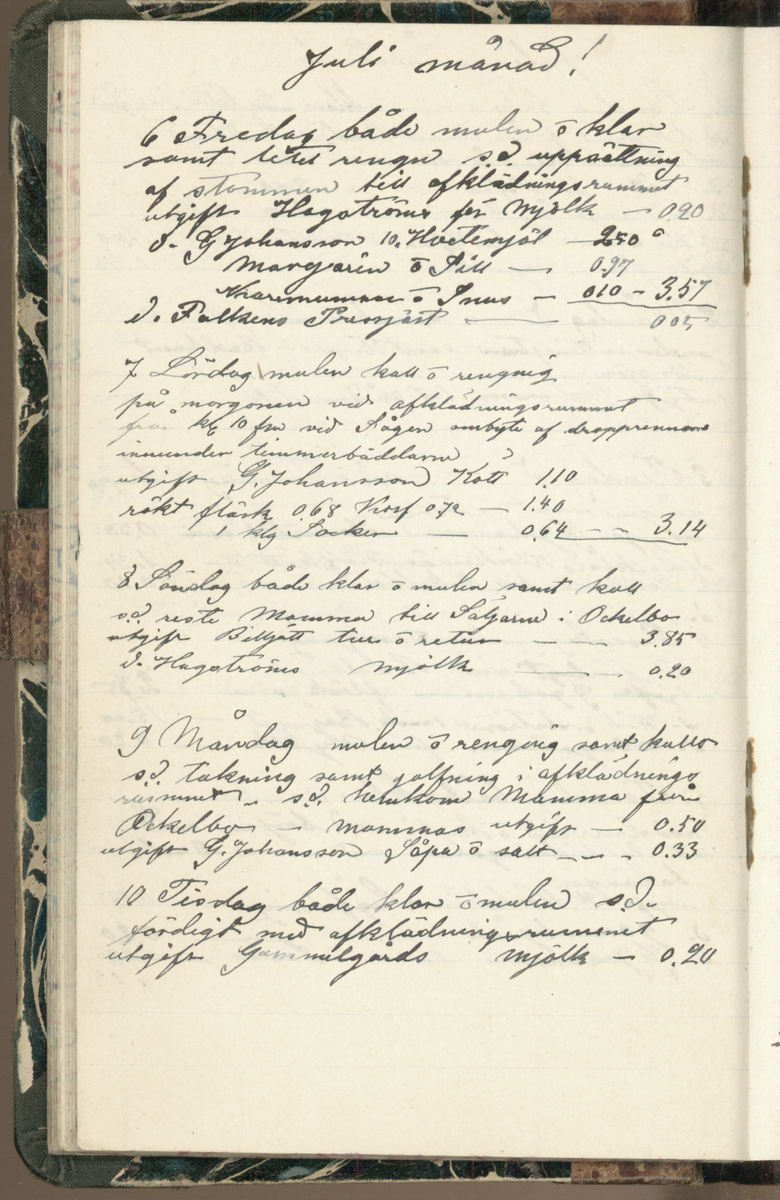 Juli månad!
6 Fredag både mulen ö klar
samt litet rengn s.d. uppsättning
af stommen till afklädningsrummet
utgift Hagströms för Mjölk — 0.20
d. G Johansson 10. Hvetemjöl — 2.50
Margarin ö Sill — 0.97
ö Snus — 0.10 — 3.57
d. Falkens Pressjäst — 0.05
7 Lördag mulen kall ö rengnig
på morgonen vid afklädningsrummet
från kl 10 fm vid Sågen ombyte af dropprennorna
inunder timmerbäddarne
utgift G. Johansson Kött 1.10
rökt fläsk 0.68 Korf 0.72 — 1.40
1 klg Socker — 0.64 — - 3.14
8 Söndag både klar ö mulen samt kall
s.d reste Mamma till Säljarne i Ockelbo
utgift Biljätt tur ö retur — — 3.85
d. Hagströms mjölk — 0.20
9 Måndag mulen ö rengnig samt kallt
s.d. takning samt golfning i afklädnings
rummet „ s.d. hemkom Mamma från
Ockelbo — mammas utgift — 0.50
utgift G. Johansson Såpa ö salt — — - 0.33
10 Tisdag både klar ö mulen s.d.
färdigt med afklädningsrummet
utgift Gammelgårds mjölk — 0.20